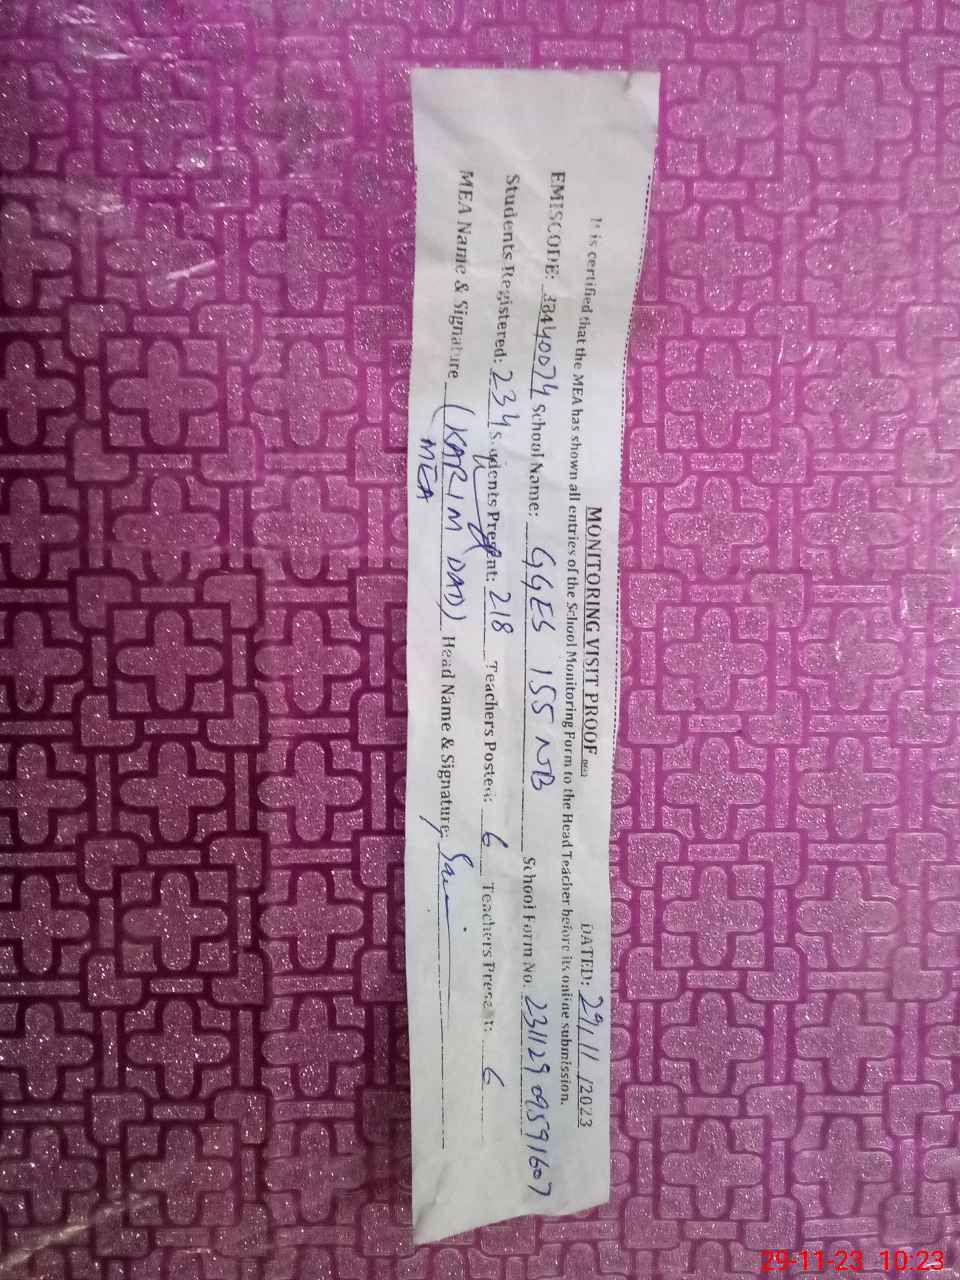 MONITORING VISIT PROOF
DATED: 29/11/2023
It is certified that the MEA has shown all entries of the School Monitoring Form to the Head Teacher before its online submission.
EMISCODE: 38440074 School Name: GGES 155 NB School Form No. 231129 09591607
Students Registered: 234 Students Present: 218 Teachers Posted: 6 Teachers Present: 6
MEA Name & Signature (KARIM DAD) Head Name & Signature:
MEA
29-11-23 10:23